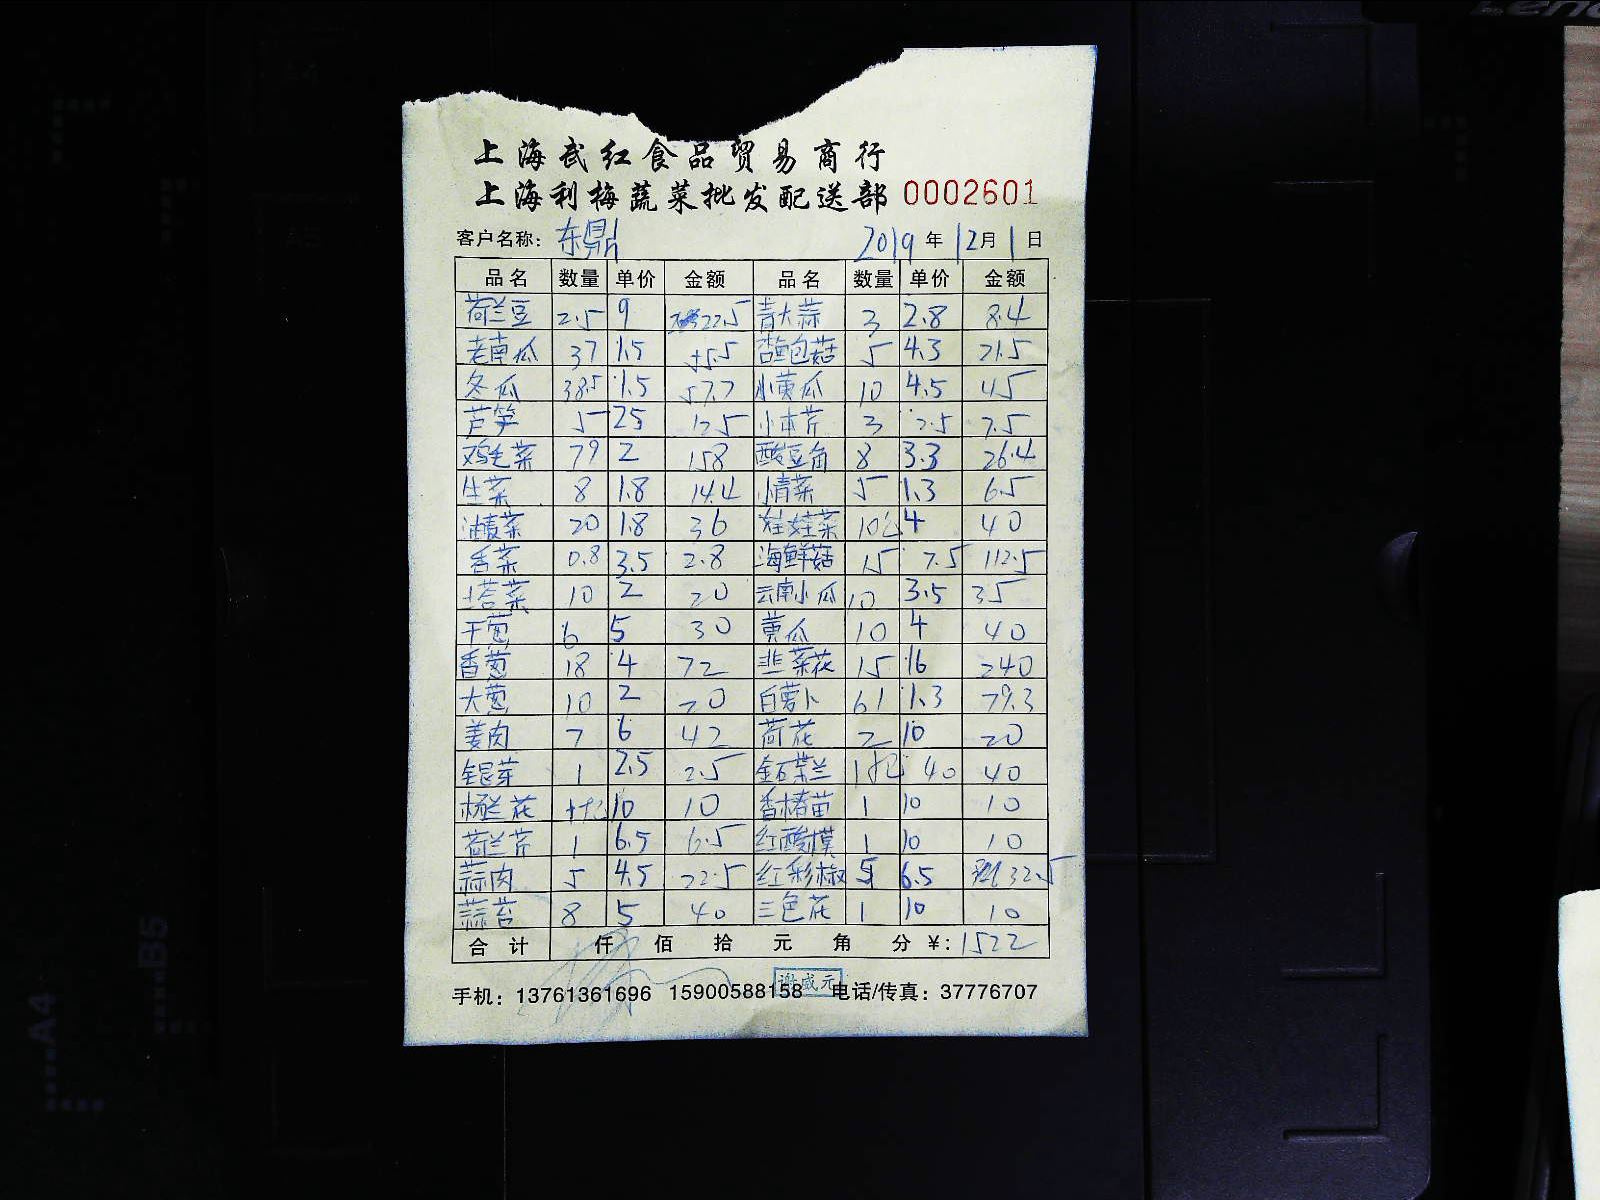 上海武红食品贸易商行
上海利梅蔬菜批发配送部 0002601
客户名称: 东鼎 2019 年 12 月 1 日
品名 数量 单价 金额 品名 数量 单价 金额
荷兰豆 2.5 9 22.5 青大蒜 3 2.8 8.4
老南瓜 37 1.5 55.5 杏鲍菇 5 4.3 21.5
冬瓜 38.5 1.5 57.7 小黄瓜 10 4.5 45
芦笋 5 25 125 小本芹 3 2.5 7.5
鸡毛菜 79 2 158 酸豆角 8 3.3 26.4
生菜 8 1.8 14.4 小青菜 5 1.3 6.5
油麦菜 20 1.8 36 娃娃菜 10包 4 40
香菜 0.8 3.5 2.8 海鲜菇 15 7.5 112.5
塔菜 10 2 20 云南小瓜 10 3.5 35
干葱 6 5 30 黄瓜 10 4 40
香葱 18 4 72 韭菜花 15 16 240
大葱 10 2 20 白萝卜 61 1.3 79.3
姜肉 7 6 42 荷花 2 10 20
银芽 1 2.5 2.5 金石菜兰 1 40 40
杨兰花 1 10 10 香椿苗 1 10 10
荷兰芹 1 6.5 6.5 红酸模 1 10 10
蒜肉 5 4.5 22.5 红彩椒 5 6.5 32.5
蒜苔 8 5 40 三色花 1 10 10
合计 仟 佰 拾 元 角 分 ¥: 1522
谢盛元
手机: 13761361696 15900588158 电话/传真: 37776707
A4
B5
Leno